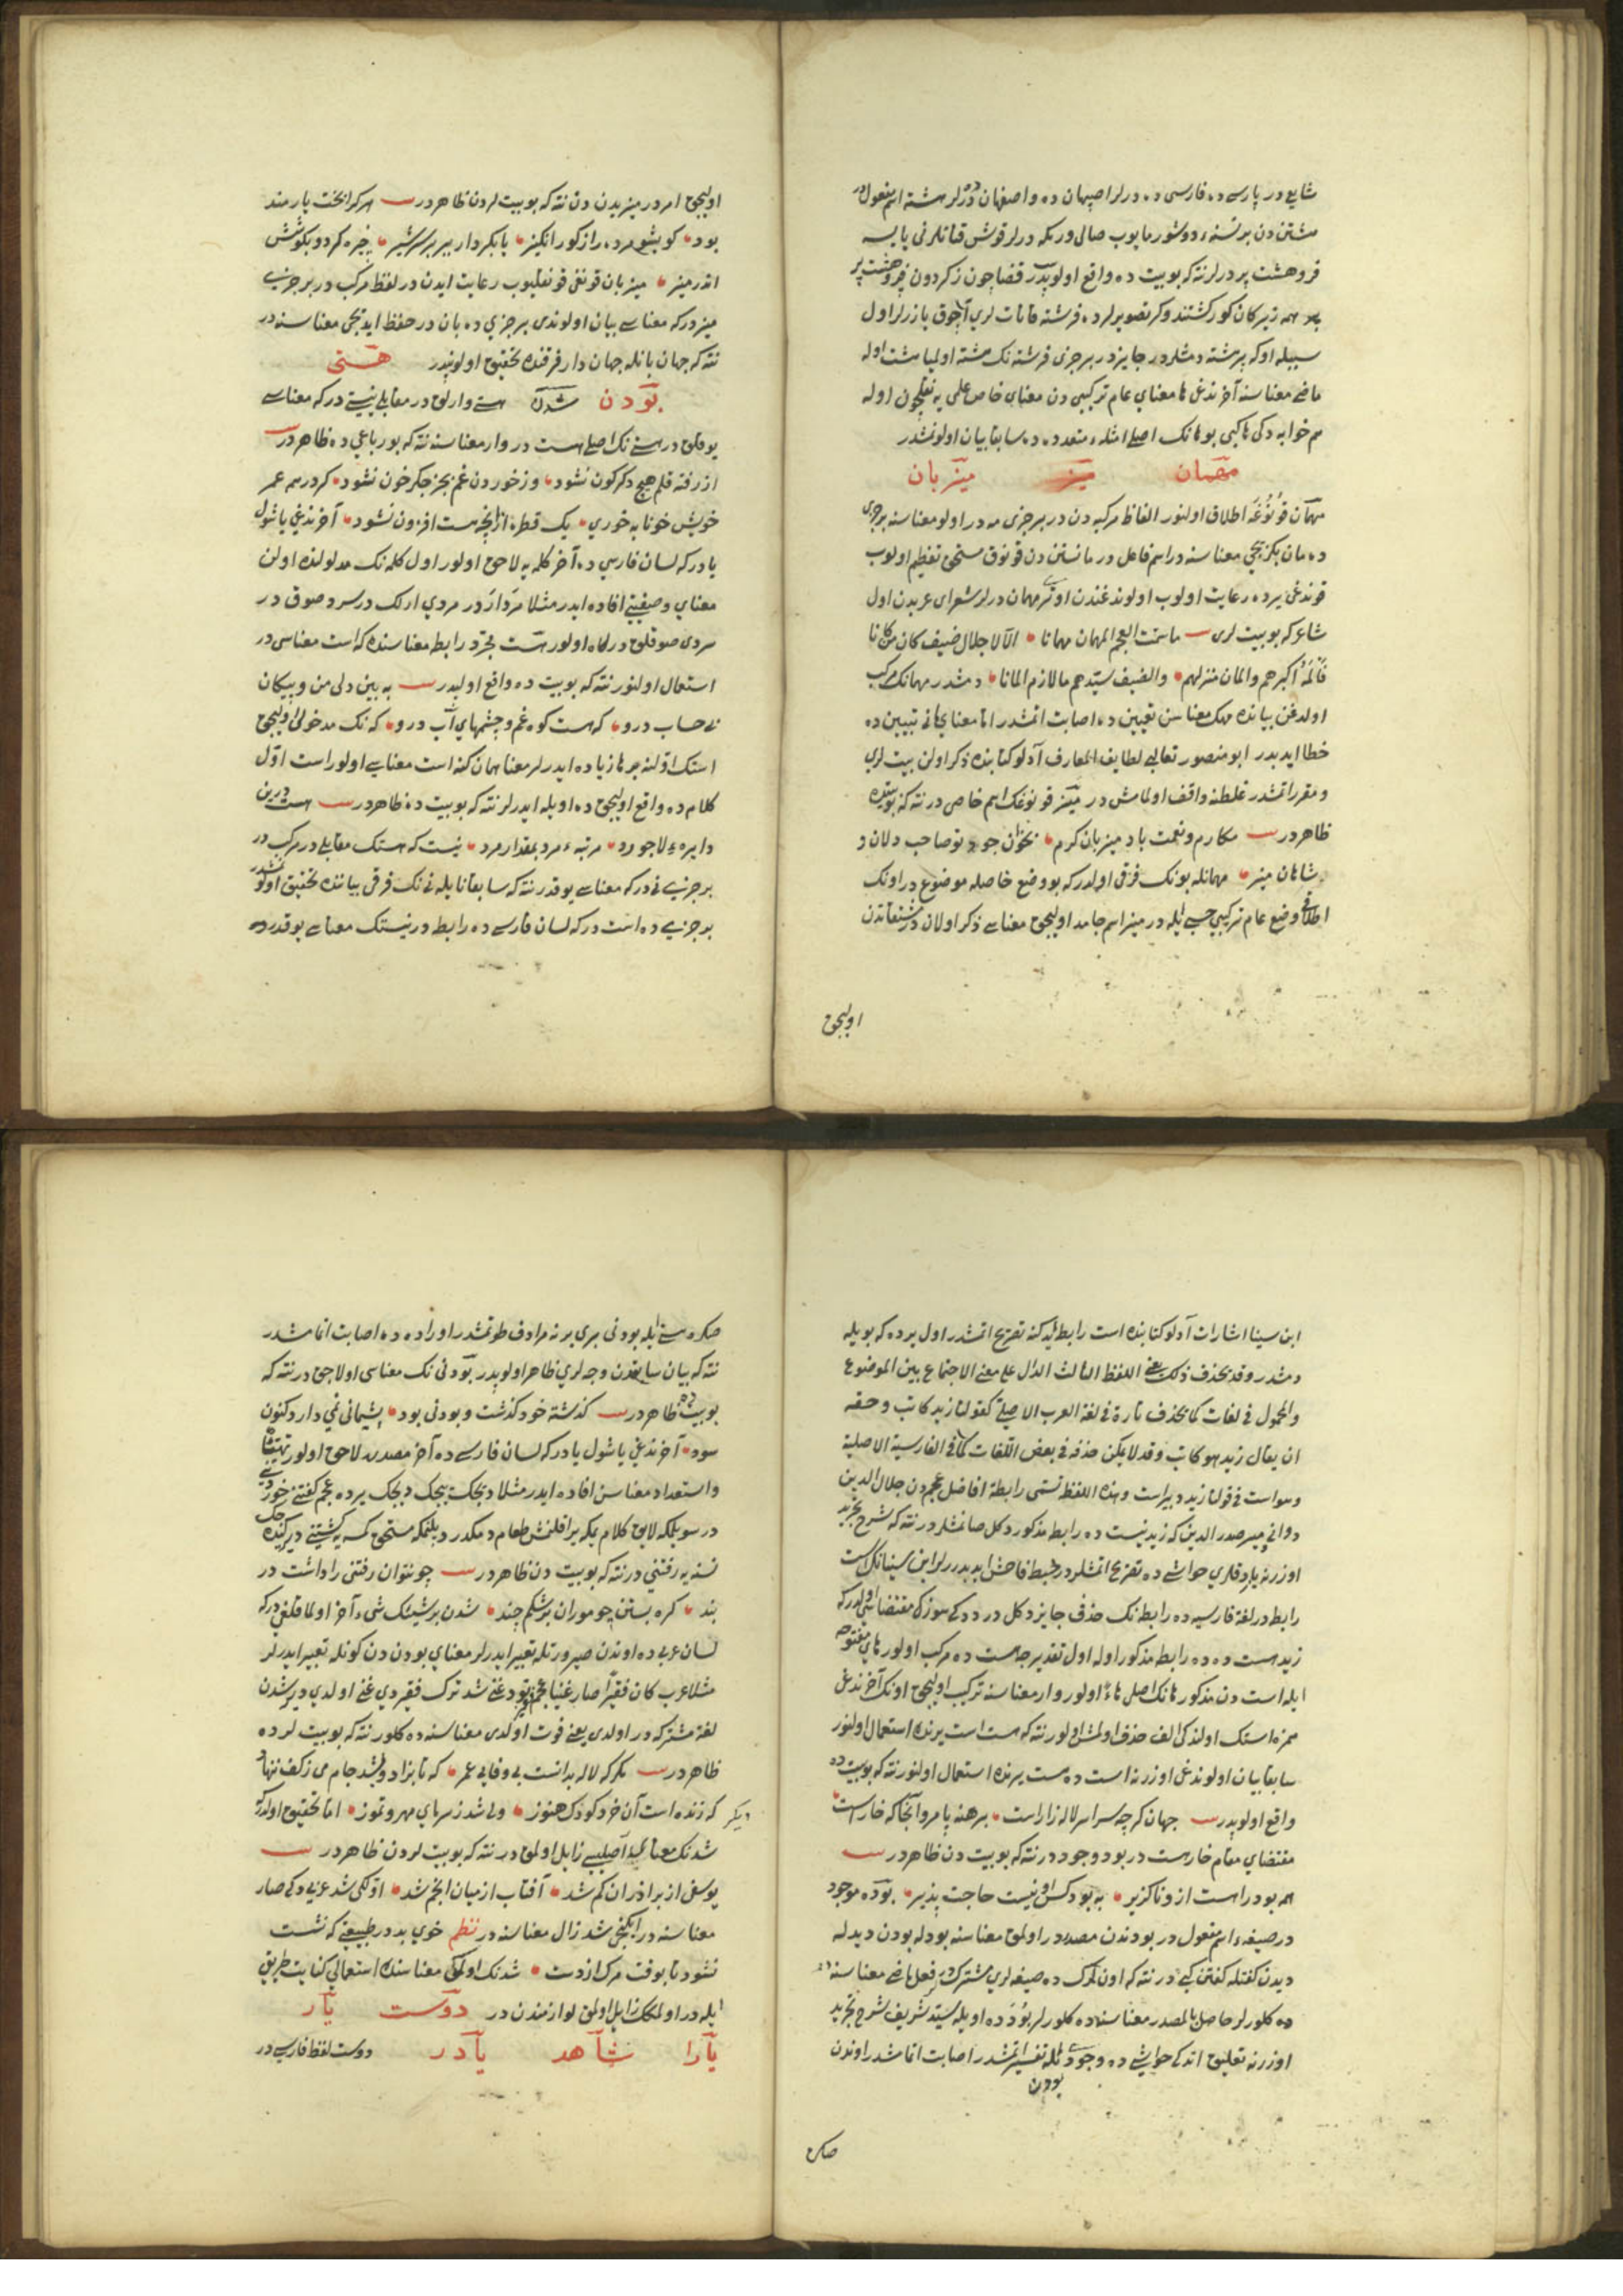 شايع در پارسی ده فارسی ده درلر اصپهان ده واصفهان ده درلر هشته اسم مفعول در
هشتن دن بر نسنه دوشورمايوب صالی ورمكه درلر قوش قناتلرنی يايسه
فروهشت پر درلر نته كه بو بيت ده واقع اولوبدر قضا چون زكردون فروهشت پر
همه زيركان كور كشتند وكر تصويرلرده فرشته قاناتلری آچوق يازرلر اول
سببله اوكه پرشته دمشلردر جايزدر بر جزی فرشته نك هشته اوليا هشت اوله
ماضی معناسنه آخرنده غی ها معنای عام تركيبی دن معنای خاص علمی يه نقلچون اوله
هم خوابه ده كی ها كبی بو هانك اصلی امثله متعدده ده سابقا بيان اولونمشدر
مهمان ميز ميزبان
مهمان قونوغه اطلاق اولنور الفاظ مركبه دن در بر جزی مه در اولو معناسنه بر جزی
ده مان بكزيجی معناسنه در اسم فاعل در مانستن دن قونوق مستحق تعظيم اولوب
قوندغی يرده رعايت اولوب اولوندغندن اوتری مهمان درلر شعرای عربدن اول
شاعر كه بو بيت لری ما سمت العجم المهمان مهمانا الا لاجلال ضيف كان من كانا
فالمه اكبرهم والمان منزلهم والضيف سيدهم ما لازم المانا دمشدر مهمانك مركب
اولدغن بيانده مهك معناسن تعيين ده اصابت اتمشدر اما معنای مانی تبيين ده
خطا ايدبدر ابو منصور ثعالبی لطايف المعارف آدلو كتابنده ذكر اولن بيت لری
ومقرر اتمشدر غلطنه واقف اولمامش در ميز قونوغك اسم خاصی درنته كه بو بيتده
ظاهردر مكارم ونعمت باد ميزبان كرم بخوان جود تو صاحب دلان و
شاهان ميز مهمانله بونك فرقی اولدر كه بو وضع خاصله موضوع در اونك
اطلاقی وضع عام تركيبی حسبی ايله در ميز اسم جامد اوليجق معناسی ذكر اولان در مشتقاتدن
اوليجق
اوليجق امر در ميزيدن دن نته كه بو بيت لردن ظاهردر هر كرا بخت يارمند
بود كو بشو مرده را ز كور انكيز يا بكردار ببر بر سر شير خيره كردد بكوشش
اندر ميز ميزبان قونغی قونقليوب رعايت ايدن در لفظ مركب در بر جزیسی
ميز در كه معناسی بيان اولوندی بر جزی ده بان در حفظ ايديجی معناسنه در
نته كه جهان بانله جهان دار فرقنده تحقيق اولوبدر هستی
بودن شدن هستی وارلق در مقابلی نيستی در كه معناسی
يوقلق در هستی نك اصلی هست در وار معناسنه نته كه بو رباعی ده ظاهردر
از رفته قلم هيچ دكركون نشود وز خوردن غم بجز جكر خون نشود كر در همه عمر
خويش خونابه خوری يك قطره ازانچه هست افزون نشود آخرنده غی يا شول
يا در كه لسان فارسی ده آخر كلمه يه لاحق اولور اول كلمه نك مدلولنده اولن
معنای وصفيتی افاده ايدر مثلا مرد ار در مردی ارلك در سرد صوق در
سردی صوقلق در كاه اولور هست مجرد رابط معناسنده كه است معناسی در
استعمال اولنور نته كه بو بيت ده واقع اولبدر به بين دلی من وپيكان
بی حساب درو كه هست كوه غم وچشمهای آب درو كه نك مدخولی اوليجق
استك اولنه بر ها زياده ايدرلر معنا همان كنه است معناسی اولور است اول
كلامده واقع اوليجق ده اويله ايدرلر نته كه بو بيت ده ظاهردر هست درين
دايره لاجورد مرتبه مرد بمقدار مرد نيست كه هستك مقابلی در مركب در
بر جزیسی نی در كه معناسی يوقدر نته كه سابقا نا يله نی نك فرقی بياننده تحقيق اولونمشدر
بر جزیسی ده است در كه لسان فارسی ده رابط در نيستك معناسی يوقدر ده
ابن سينا اشارات آدلو كتابنده است رابط ايدكنه تصريح اتمشدر اول يرده كه بويله
دمشدر وقد يحذف ذلك يعنی اللفظ الثالث الدال علی معنی الاجتماع بين الموضوع
والمحمول فی لغات كما يحذف تارة فی لغة العرب الاصلی كقولنا زيد كاتب وحقه
ان يقال زيد هو كاتب وقد لا يمكن حذفه فی بعض اللغات كما فی الفارسية الاصلية
وهو است فی قولنا زيد دبيراست وهذه اللفظ تسمی رابطة افاضل عجمدن جلال الدين
دوانی ومير صدر الدين كه زيد نيست ده رابط مذكور دكل صانمشلر در نته كه شرح تجريد
اوزرنه يازدقلری حواشی ده تصريح اتمشلردر خبط فاحش ايدبدرلر ابن سينانك است
رابط در لغة فارسيه ده رابط نك حذفی جايز دكل در ددكی سوزك مقتضاسی اولدر كه
زيد هست ده ده رابط مذكور اوله اول تقدير جه هست ده مركب اولور های مفتوحه
ايله است دن مذكور هانك اصلی هاء اولور وار معناسنه تركيب اوليجق اونك آخرنده غی
همزه استك اولنده كی الف حذف اولمش اولور نته كه هست است يرنده استعمال اولنور
سابقا بيان اولوندغی اوزرنه است ده هست يرنده استعمال اولنور نته كه بو بيت ده
واقع اولوبدر جهان كرچه سراسر لاله زار است برهنه پا مرو آنجا كه خار است
مقتضای مقام خار هست در بود وجود در نته كه بو بيت دن ظاهردر
همه بود را هست ازو ناكزير به بود كس او نيست حاجت پذير بوده موجود
در صيغه اسم مفعول در بودندن مصدر در اولمق معناسنه بودله بودن ديد له
ديدن كفتله كفتن كبی در نته كه اونلرك ده صيغه لری مشترك در فعل ماضی معناسنه ده
ده كلورلر حاصل بالمصدر معناسنه ده كلورلر بود ده اويله سيد شريف شرح تجريد
اوزرنه تعليق اتدكی حواشی ده وجودی بودن ايله تفسير اتمشدر اصابت اتمامشدر اوندن
صكره
صكره هستی ايله بودنی بری برنه مرادف طوتمشدر اوراده ده اصابت اتمامشدر
نته كه بيان سابقدن وجه لری ظاهر اولوبدر بودنی نك معناسی اولاجق در نته كه
بو بيت ده ظاهردر كذشته خود كذشت وبودنی بود پشيمانی نمی دارد كنون
سود آخرنده غی يا شول يا در كه لسان فارسی ده آخر مصدره لاحق اولور
واستعداد معناسن افاده ايدر مثلا ديجك ييجك ديجك يرده عجم كفتنی خوردنی
در سويلمكه لايق كلام يمكه يراقلنمش طعام دمكدر دپلنمكه مستحق كمسه يه كشتنی دير كيده جك
نسنه يه رفتنی در نته كه بو بيت دن ظاهردر چو نتوان رفتنی را داشت در
بند كره بستن چو موران بر شكم چند شدن بر شيئك شیء آخر اولماقلغی در كه
لسان عربی ده اوندن صيرورتله تعبير ايدرلر معنای بودن دن كونله تعبير ايدرلر
مثلا عرب كان فقيرا صار غنيا عجم فقير بود غنی شد ترك فقير دی غنی اولدی دير شدن
لغة مشتركه در اولدی يعنی فوت اولدی معناسنه ده كلور نته كه بو بيت لر ده
ظاهردر مكر كه لاله بدانست بی وفايی عمر كه تا بزاد وبشد جام می زكف ننهاد
ديكر كه زنده است آن خرد كودك هنوز ويا شد ز سرمای مهر وتموز اما تحقيق اولدر كه
شدنك معنای اصليسی زايل اولمق در نته كه بو بيت لردن ظاهردر
يوسفی از برادران كم شد آفتاب از ميان انجم شد اولكی شد عربی ده كی صار
معناسنه در ايكنجی شد زال معناسنه در نظم خوی بد در طبيعتی كه نشست
نشود تا بوقت مرك از دست شدنك اولمق معناسنده استعمالی كنايت طريقی
ايله در اولمكك زايل اولمق لوازمندن در دوست يار
يارا شاهد يادر دوست لفظ فارسی در